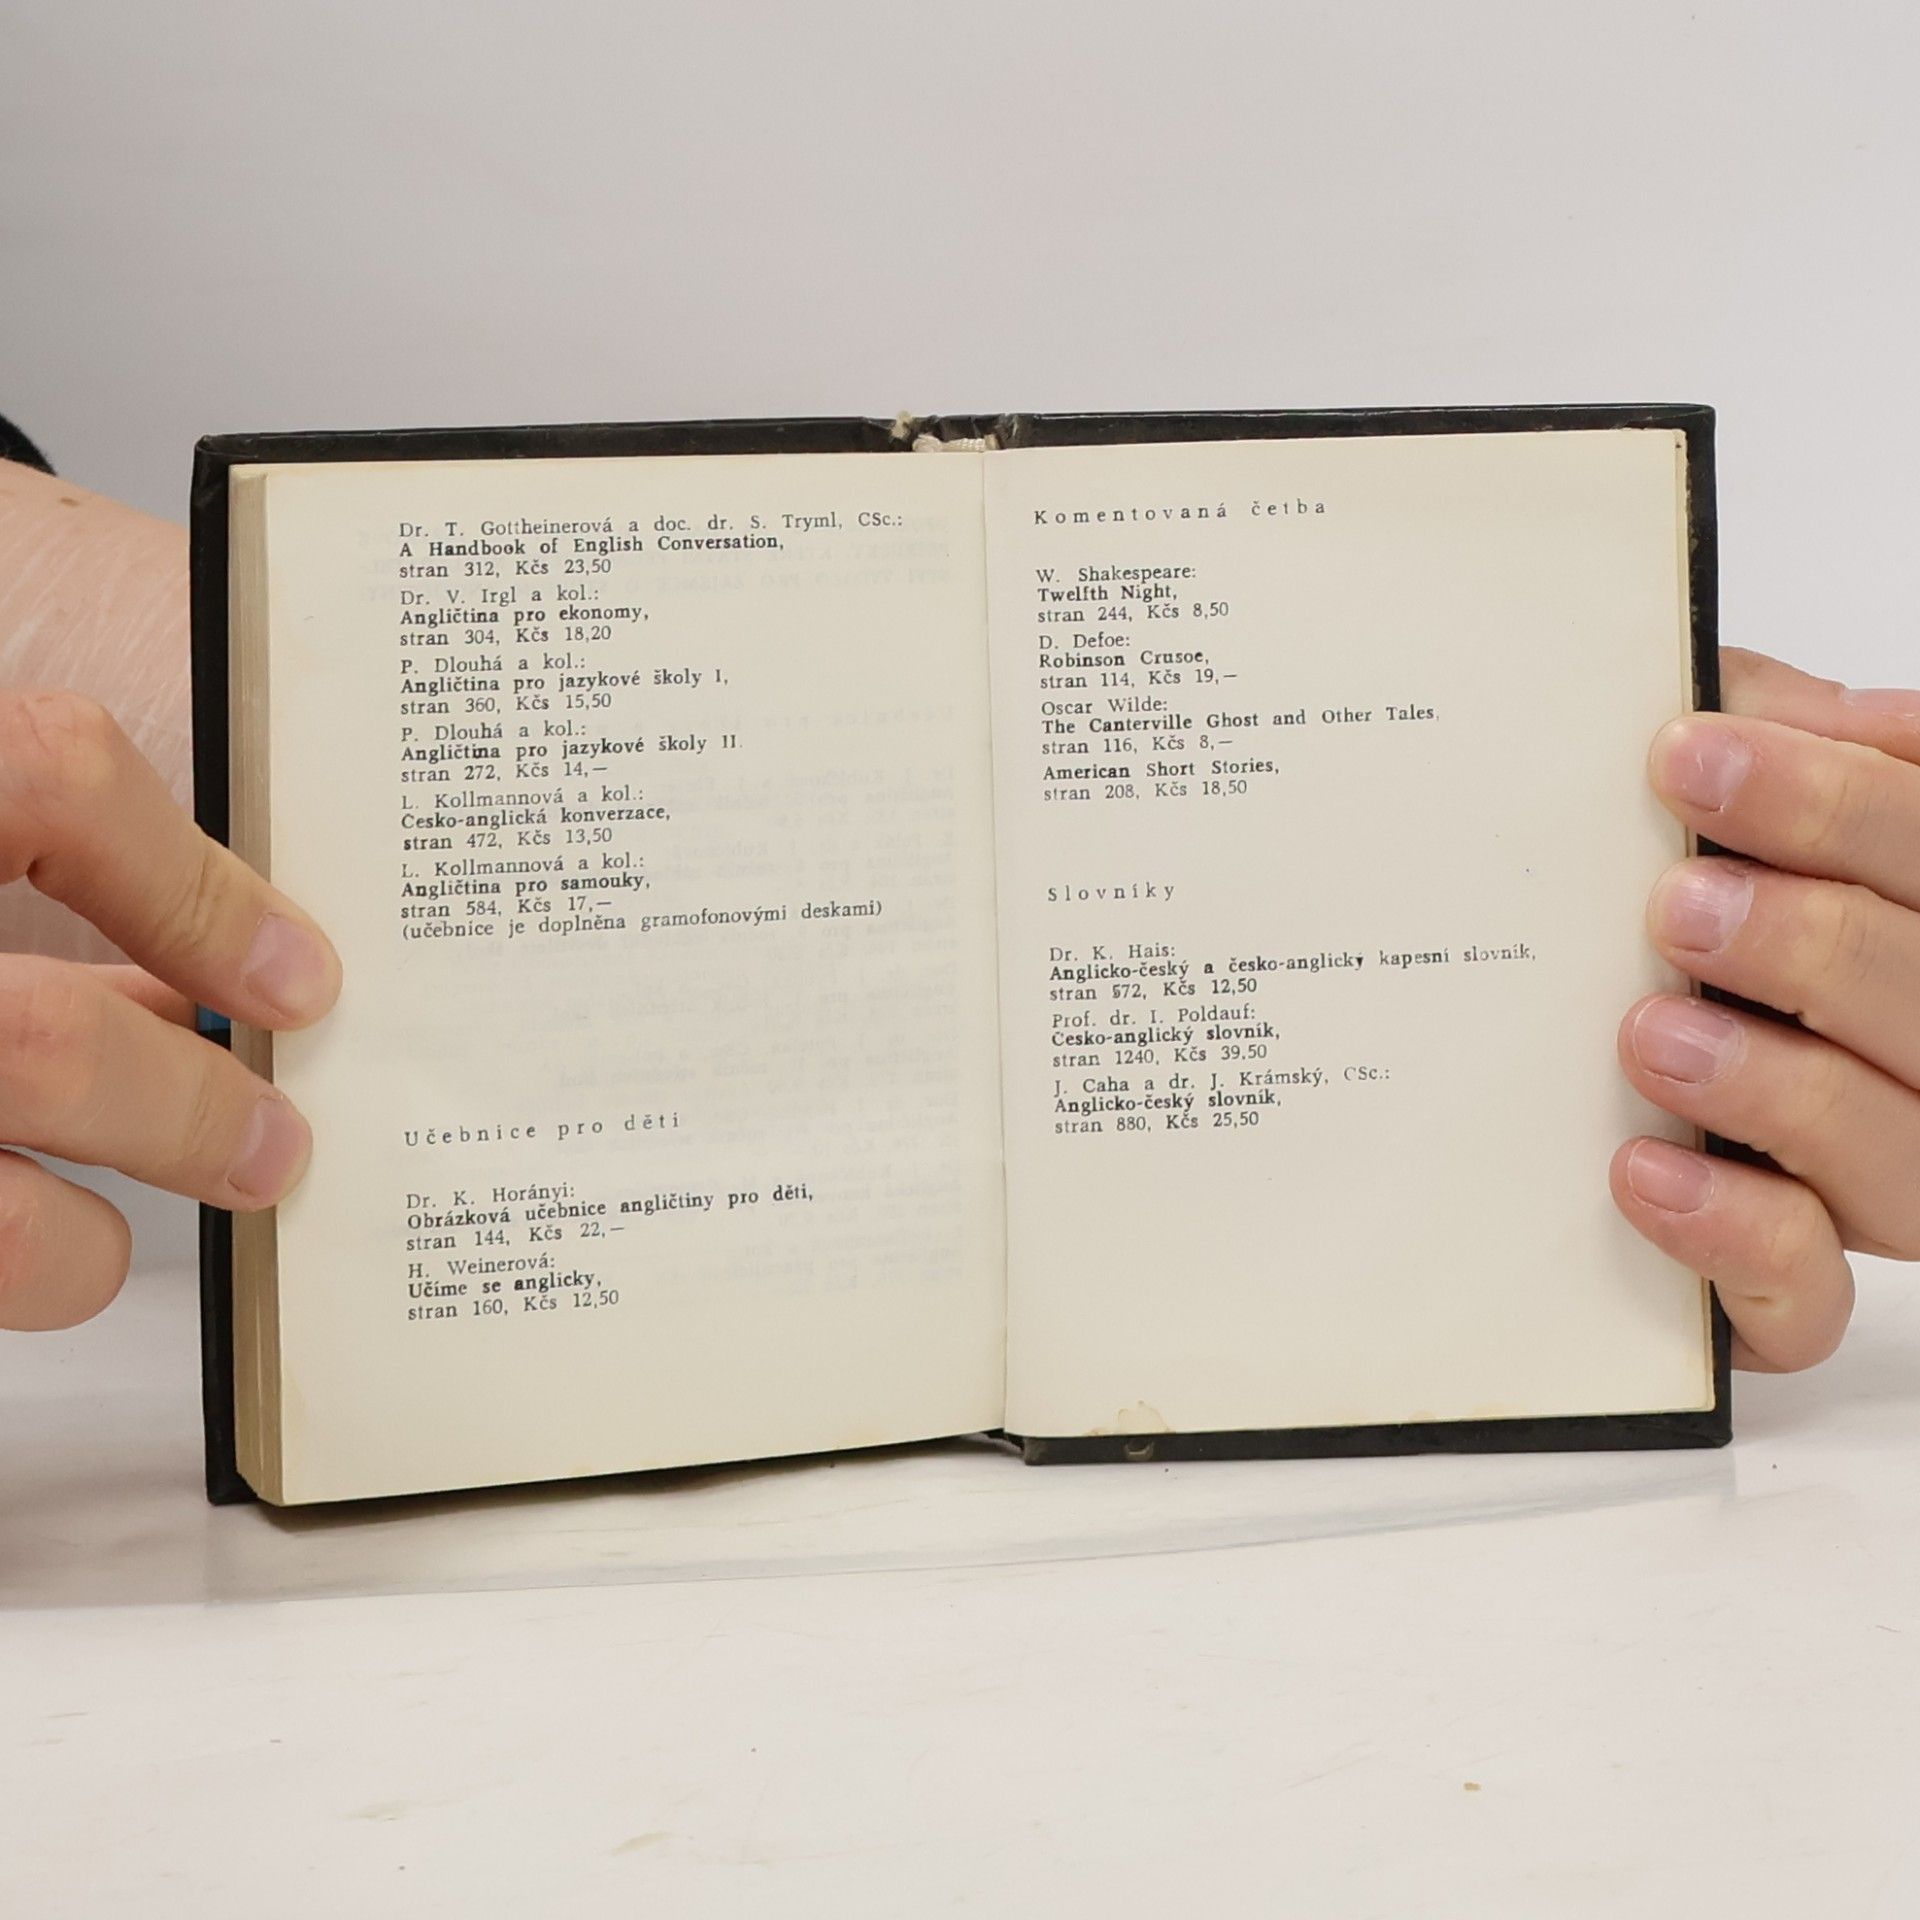 Dr. T. Gottheinerová a doc. dr. S. Tryml, CSc.:
A Handbook of English Conversation,
stran 312, Kčs 23,50
Dr. V. Irgl a kol.:
Angličtina pro ekonomy,
stran 304, Kčs 18,20
P. Dlouhá a kol.:
Angličtina pro jazykové školy I,
stran 360, Kčs 15,50
P. Dlouhá a kol.:
Angličtina pro jazykové školy II.
stran 272, Kčs 14,—
L. Kollmannová a kol.:
Česko-anglická konverzace,
stran 472, Kčs 13,50
L. Kollmannová a kol.:
Angličtina pro samouky,
stran 584, Kčs 17,—
(učebnice je doplněna gramofonovými deskami)
Učebnice pro děti
Dr. K. Horányi:
Obrázková učebnice angličtiny pro děti,
stran 144, Kčs 22,—
H. Weinerová:
Učíme se anglicky,
stran 160, Kčs 12,50
Komentovaná četba
W. Shakespeare:
Twelfth Night,
stran 244, Kčs 8,50
D. Defoe:
Robinson Crusoe,
stran 114, Kčs 19,—
Oscar Wilde:
The Canterville Ghost and Other Tales,
stran 116, Kčs 8,—
American Short Stories,
stran 208, Kčs 18,50
Slovníky
Dr. K. Hais:
Anglicko-český a česko-anglický kapesní slovník,
stran 572, Kčs 12,50
Prof. dr. I. Poldauf:
Česko-anglický slovník,
stran 1240, Kčs 39.50
J. Caha a dr. J. Krámský, CSc.:
Anglicko-český slovník,
stran 880, Kčs 25,50